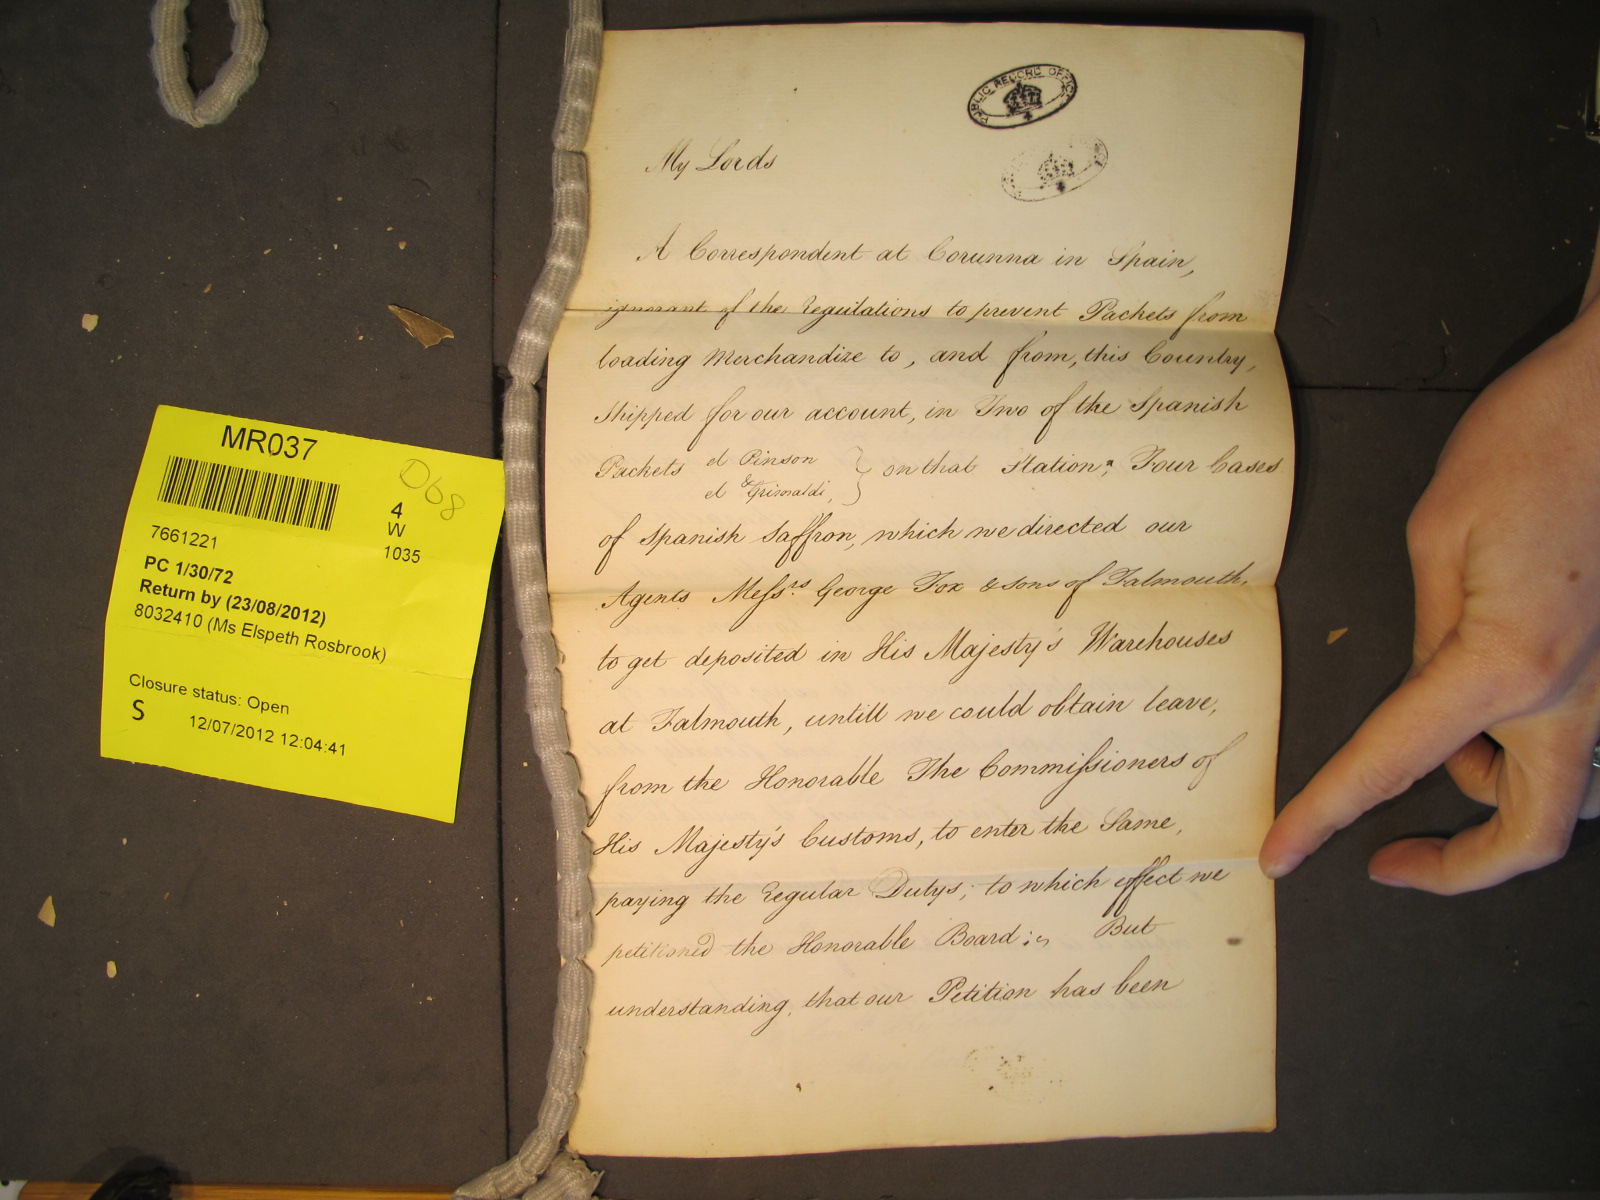 MR037
D68
4
W
1035
7661221
PC 1/30/72
Return by (23/08/2012)
8032410 (Ms Elspeth Rosbrook)
Closure status: Open
S
12/07/2012 12:04:41
PUBLIC RECORD OFFICE
My Lords
A Correspondent at Corunna in Spain,
ignorant of the regulations to prevent Packets from
loading Merchandize to, and from, this Country,
Shipped for our account, in Two of the Spanish
Packets el Pinson & el Grimaldi, } on that Station; Four Cases
of Spanish Saffron, which we directed our
Agents Messrs. George Fox & Sons of Falmouth,
to get deposited in His Majesty's Warehouses
at Falmouth, untill we could obtain leave,
from the Honorable The Commissioners of
His Majesty's Customs, to enter the Same,
paying the regular Dutys; to which effect we
petitioned the Honorable Board; But
understanding, that our Petition has been